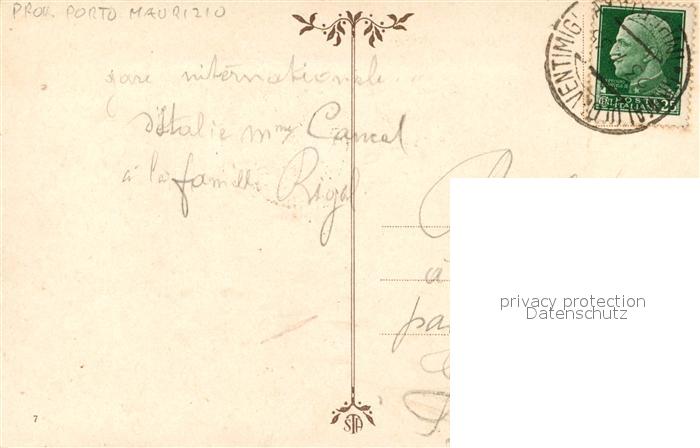 PROV. PORTO MAURIZIO
gare internationale
d'Italie Mme Cancel
à la famille Rigal
à
privacy protection
Datenschutz
VENTIMIGLIA
POSTE
ITALIANE
25
7
STA